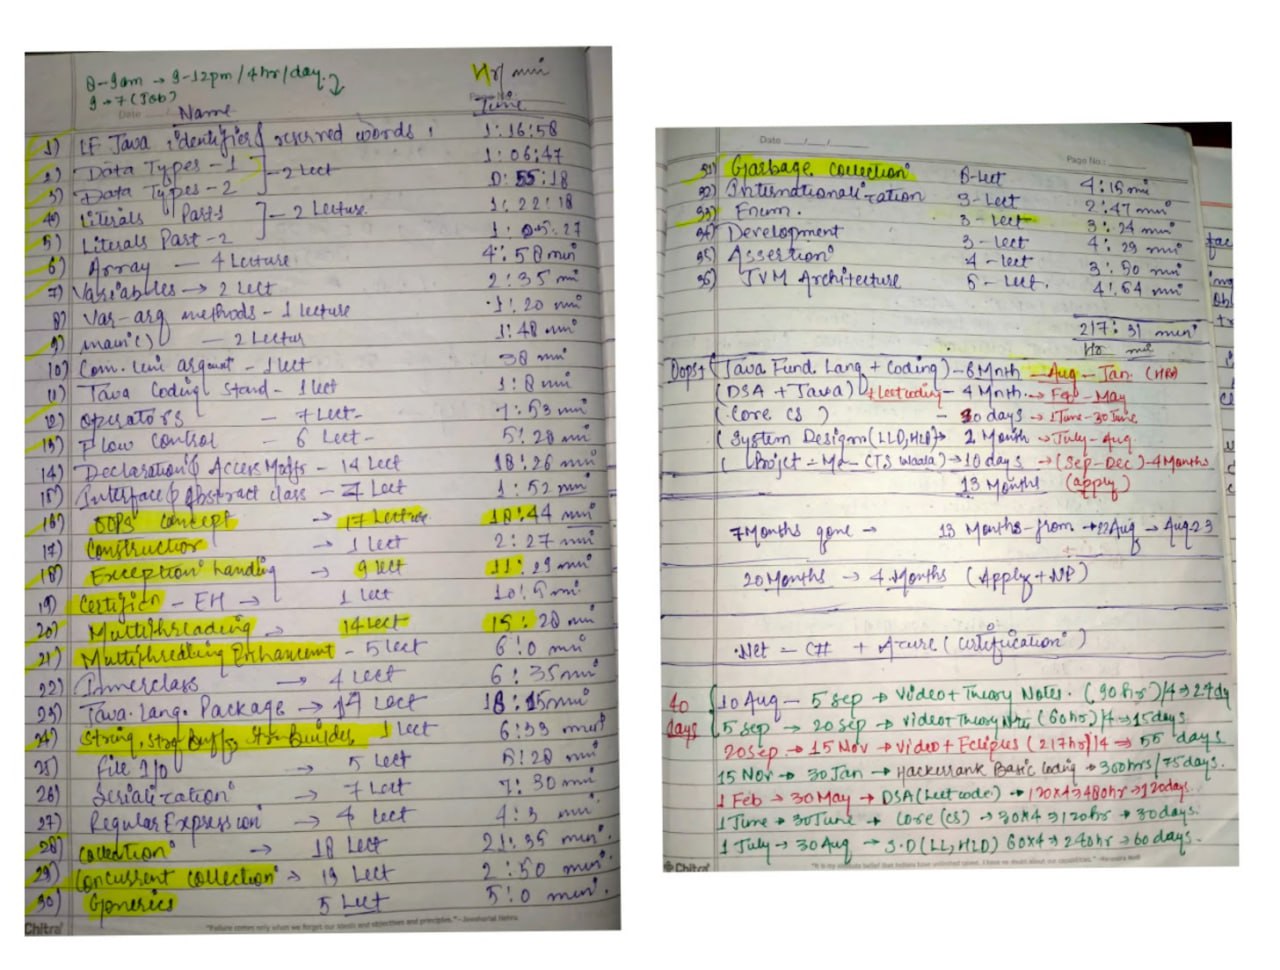 8-9am → 9-12pm / 4hr/day
9 → 7 (Job)
Hr/ min
Date
Page No.:
Name
Time
1) LF Java identifier & reserved words 1:16:58
2) Data Types - 1 1:06:47
- 2 Lect
3) Data Types - 2 0:55:18
4) Literals Part 1 1:22:18
- 2 Lecture
5) Literals Part - 2 1:05:27
6) Array — 4 Lecture 4:58 min
7) Variables → 2 Lect 2:35 min
8) Var-arg methods - 1 lecture 1:20 min
9) main() — 2 Lectur 1:48 min
10) Com. line argument - 1 lect 38 min
11) Java Coding Stand - 1 lect 1:8 min
12) Operators - 7 Lect- 7:53 min
13) Flow Control - 6 Lect- 5:28 min
14) Declaration & Access Modfs - 14 Lect 18:26 min
15) Interface & Abstract class - Lect 1:52 min
16) OOPS concept → 17 Lecture 18:44 min
17) Constructor → 1 Lect 2:27 min
18) Exception handing → 9 lect 11:29 min
19) - EH → 1 lect 10:5 min
20) Multithreading → 14 lect 15:28 min
21) Multithreading Enhancemt - 5 lect 6:0 min
22) Innerclass → 4 Lect 6:35 min
23) Java. Lang. Package → 14 Lect 18:15 min
24) String, Strg Buff, Str. Builder 1 Lect 6:33 min
25) File I/O → 5 Lect 5:20 min
26) Serialization → 7 Lect 7:30 min
27) Regular Expression → 4 Lect 4:3 min
28) Collection → 18 Lect 21:35 min.
29) Concurrent collection → 13 Lect 2:50 min.
30) Generics 5 Lect 5:0 min.
Chitra
"Failure comes only when we forget our ideals and objectives and principles." - Jawaharlal Nehru
Date
Page No.:
31) Garbage collection 6-Lect 4:15 mi
32) Internationalization 3-Lect 2:47 min
33) Enum. 3-Lect 3:24 min
34) Development 3-Lect 4:29 min
35) Assertion 4-lect 3:50 min
36) JVM Architecture 6-Lect. 4:64 min
217:31 min
Hr mi
Oops+ (Java Fund. Lang + Coding) - 6 Mnth - Aug - Jan. (HR)
(DSA + Java) + Leetcoding - 4 Month → Feb - May
(Core CS) - 30 days → 1 June - 30 June
(System Design (LLD, HLD) → 2 Month → July - Aug
→ 10 days → (Sep-Dec) - 4 Months
13 Months (apply)
7 Months gone → 13 Months - from → 22 Aug → Aug 23
20 Months → 4 Months (Apply + NP)
.Net - C# + Azure (Certification)
40 days
10 Aug - 5 sep → Video + Theory Notes. (90 hr)/4 → 27 dy
5 sep → 20 sep → Video + Theory Nte (60 hr)/4 → 15 days
20 sep → 15 Nov → Video + Eclipies (217 hr)/4 → 55 days
15 Nov → 30 Jan → Hackerrank Basic Coding → 300 hrs/75 days.
1 Feb → 30 May → DSA (Leetcode) → 120x4 → 480 hr → 120 days.
1 June → 30 June → Core (CS) → 30x4 → 120 hr → 30 days.
1 July → 30 Aug → S.D (LL, HLD) 60x4 → 240 hr → 60 days.
Chitra